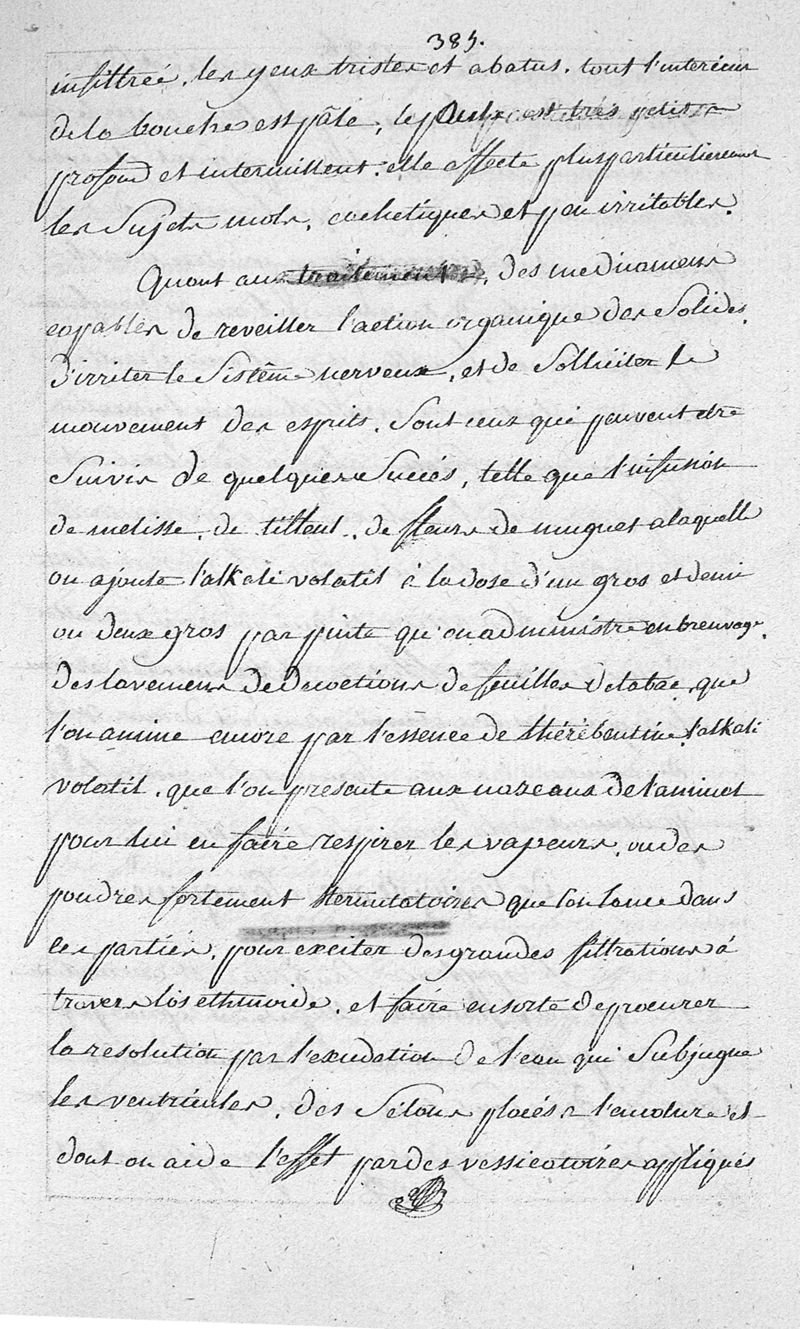 385.
infiltrée, les yeux tristes et abatus, tout l'interieur
de la bouche est pâle, le pouls est très petit
profond et intermittent, elle affecte plus particulierement
les Sujets mols, cachetiques et peu irritables.
Quant aux traitement, des medicamens
capables de reveiller l'action organique des Solides,
d'irriter le Sistême nerveux, et de Solliciter le
mouvement des esprits, Sont ceux qui peuvent etre
Suivis de quelques Succès, telle que l'infusion
de melisse, de tilleul, de fleurs de muguet a laquelle
on ajoute l'alkali volatil à la dose d'un gros et demi
ou deux gros par pinte qu'on administre en breuvage,
des lavemens de decoctions de feuilles de tabac, que
l'on anime encore par l'essence de thérébentine, l'alkali
volatil, que l'on presente aux nazeaux de l'animal
pour lui en faire respirer les vapeurs, ou des
poudres fortement sternutatoires que l'on lance dans
ces parties, pour exciter des grandes filtrations à
travers l'os ethmoide, et faire ensorte de procurer
la resolution par l'exudation de l'eau qui Subjugue
les ventricules, des Sétons placés a l'encolure et
dont on aide l'effet par des vessicatoires appliqués